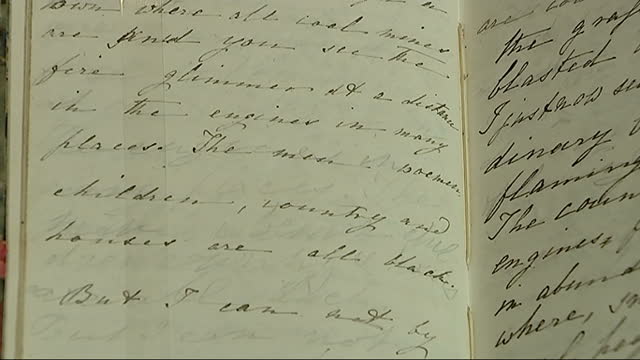 town where all coal mines
are and you see the
fire glimmer at a distance
in the engines in many
places. The men, women
children, country and
houses are all black.
But I can not by
the gra
blasted
I just now s
dinary
flaming
The coun
engines,
in abund
where, s